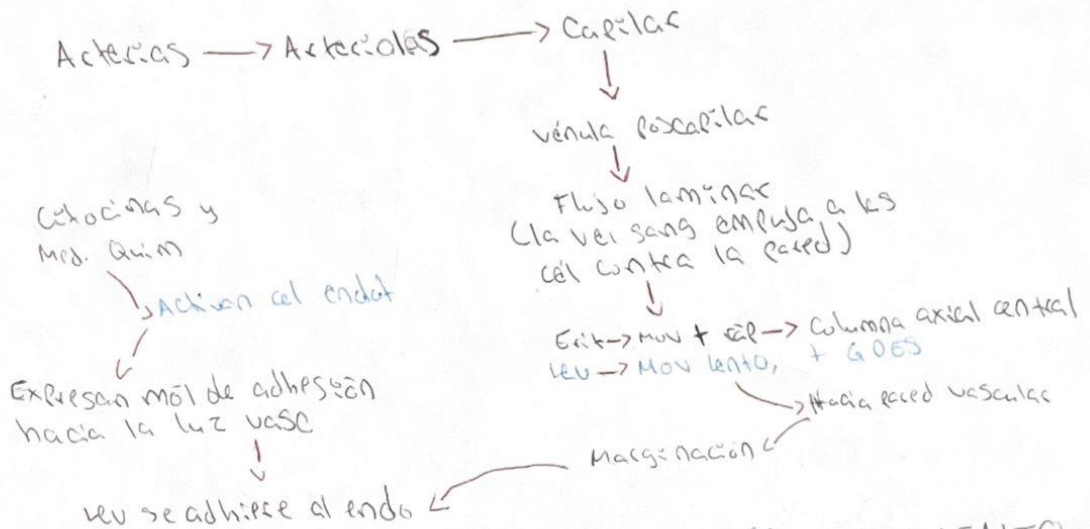 Arterias → Arteriolas → Capilar
vénula poscapilar
Flujo laminar
(la vel sang empuja a las
cél contra la pared)
Erit → Mov + ráp → Columna axial central
Leu → Mov lento, + GDES
Hacia pared vascular
Marginación
Citocinas y
Med. Quim
Activan cel endot
Expresan mól de adhesión
hacia la luz vasc
Leu se adhiere al endo